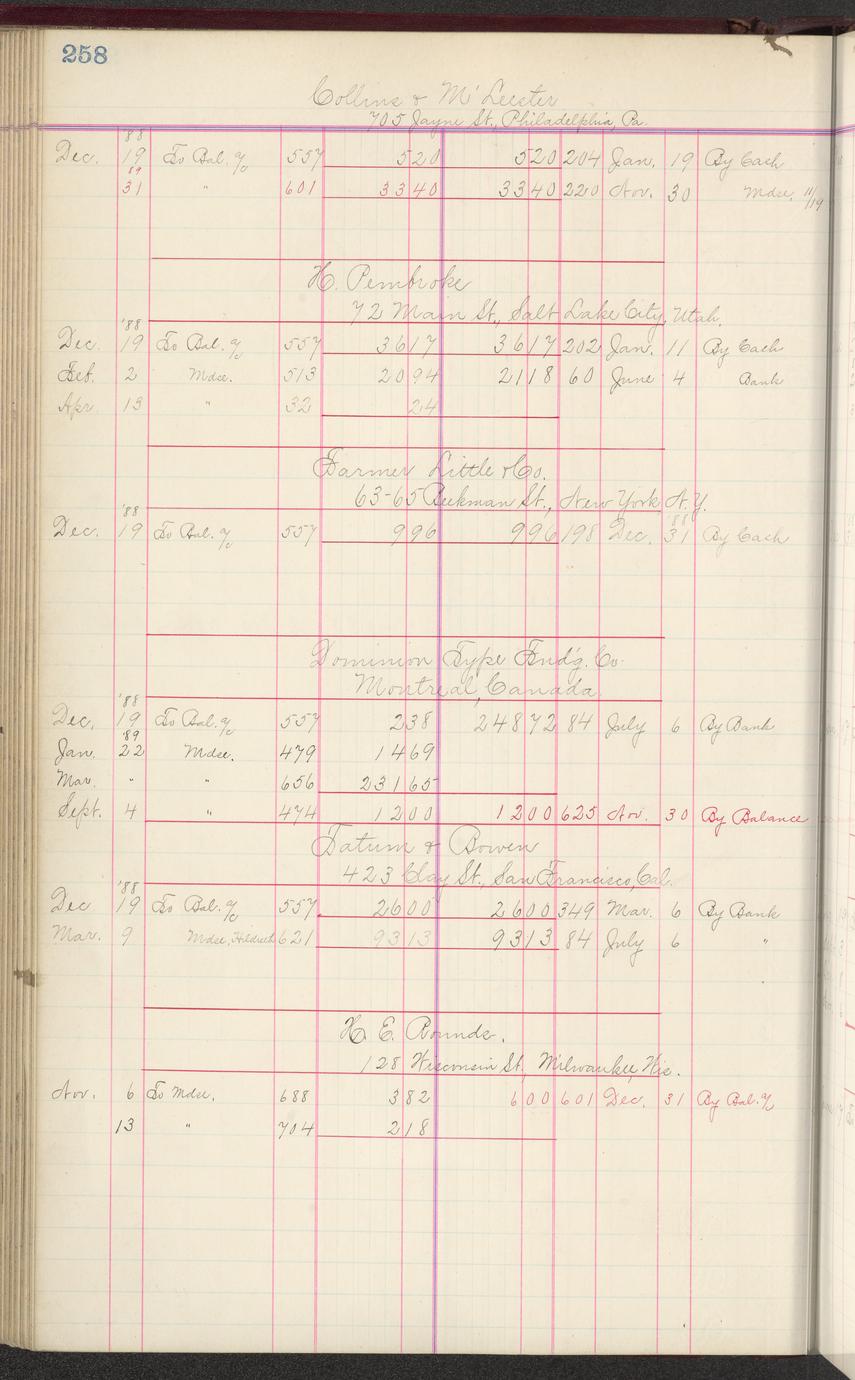 258
Collins & McLeester
705 Jayne St., Philadelphia, Pa.
'88
Dec. 19 To Bal. a/c 557 5 20 5 20 204 Jan. 19 By Cash
89
31 " 601 33 40 33 40 220 Nov. 30 Mdse. 11/19
H. Pembroke
72 Main St., Salt Lake City, Utah.
'88
Dec. 19 To Bal. a/c 557 36 17 36 17 202 Jan. 11 By Cash
Feb. 2 Mdse. 513 20 94 21 18 60 June 4 Bank
Apr 13 " 32 24
Farmer Little & Co.
63-65 Beekman St., New York N.Y.
'88 '88
Dec. 19 To Bal. a/c 557 9 96 9 96 198 Dec. 31 By Cash
Dominion Type Fnd'g. Co.
Montreal, Canada.
'88
Dec. 19 To Bal. a/c 557 2 38 248 72 84 July 6 By Bank
'89
Jan. 22 Mdse. 479 14 69
Mar. " " 656 231 65
Sept. 4 " 474 12 00 12 00 625 Nov. 30 By Balance
Tatum & Bowen
423 Clay St., San Francisco, Cal.
'88
Dec 19 To Bal. a/c 557 26 00 26 00 349 Mar. 6 By Bank
Mar. 9 Mdse, Hildreth 621 93 13 93 13 84 July 6 "
H. E. Rounds.
128 Wisconsin St. Milwaukee, Wis.
Nov. 6 To Mdse. 688 3 82 6 00 601 Dec. 31 By Bal. a/c
13 " 704 2 18